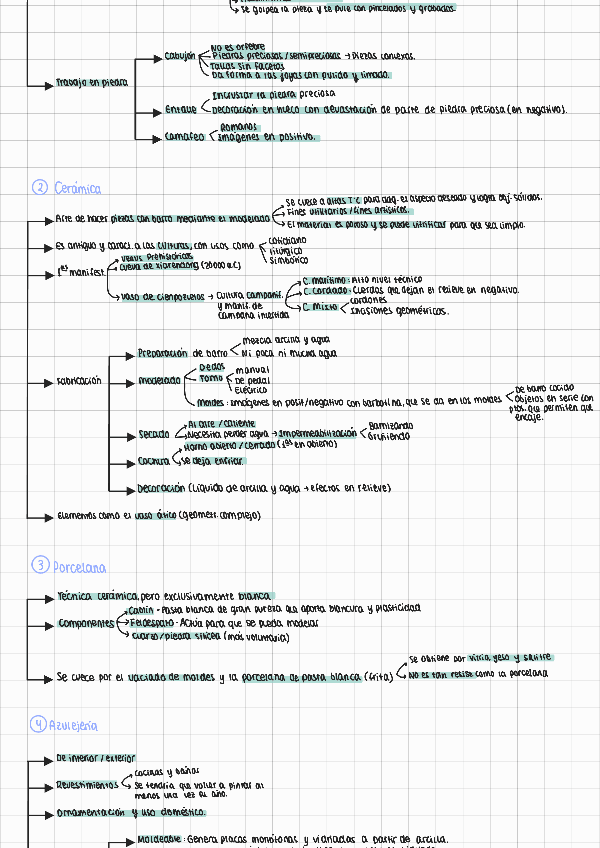 Se golpea la pieza y se pule con pincelados y grabados.
Trabajo en piedra
Cabujón
No es orfebre
Piedras preciosas/semipreciosas → Piezas convexas.
Tallas sin facetas
Da forma a las joyas con pulido y limado.
Entalle
Incrustar la piedra preciosa
Decoración en hueco con devastación de parte de piedra preciosa (en negativo).
Camafeo
Romanos
Imágenes en positivo.
② Cerámica
Arte de hacer piezas con barro mediante el modelado
Se cuece a altas TºC para adq. el aspecto deseado y logra obj. sólidos.
Fines utilitarios/fines artísticos.
El material es poroso y se puede vitrificar para que sea limpio.
Es antigua y caract. a las culturas, con usos como
cotidiano
litúrgico
simbólico
1ªs manifest
Venus Prehistóricas
Cueva de Xianrendong (20000 a.C)
Vaso de Ciempozuelos → Cultura Campanif.
y manif. de
campana invertida
C. marítimo: Alto nivel técnico
C. Cordado: Cuerdas que dejan el relieve en negativo.
C. Mixto
cordones
Incisiones geométricas.
Fabricación
Preparación de barro
mezcla arcilla y agua
Ni poca ni mucha agua
modelado
Dedos
Torno
manual
De pedal
Eléctrico
Moldes: Imágenes en posit/negativo con barbotina, que se da en los moldes
De barro cocido
Objetos en serie con
ptos. que permiten que
encaje.
Secado
Al aire / caliente
Necesita perder agua → Impermeabilización
Barnizando
Bruñiendo
Cochura
Horno abierto / cerrado (1ºs en abierto)
Se deja enfriar.
Decoración (Líquido de arcilla y agua → efectos en relieve)
Elementos como el vaso ático (geométr. complejo)
③ Porcelana
Técnica cerámica, pero exclusivamente blanca
Componentes
Caolín - Pasta blanca de gran pureza que aporta blancura y plasticidad
Feldespato - Actúa para que se pueda modelar
Cuarzo/piedra silícea (más voluntaria)
Se cuece por el vaciado de moldes y la porcelana de pasta blanca (Frita)
Se obtiene por vitria, yeso y salitre
No es tan resist. como la porcelana
④ Azulejería
De interior / exterior
Revestimientos
cocinas y baños
Se tendría que volver a pintar al
menos una vez al año.
Ornamentación y uso doméstico.
Moldeable: Genera placas monótonas y vidriadas a partir de arcilla.